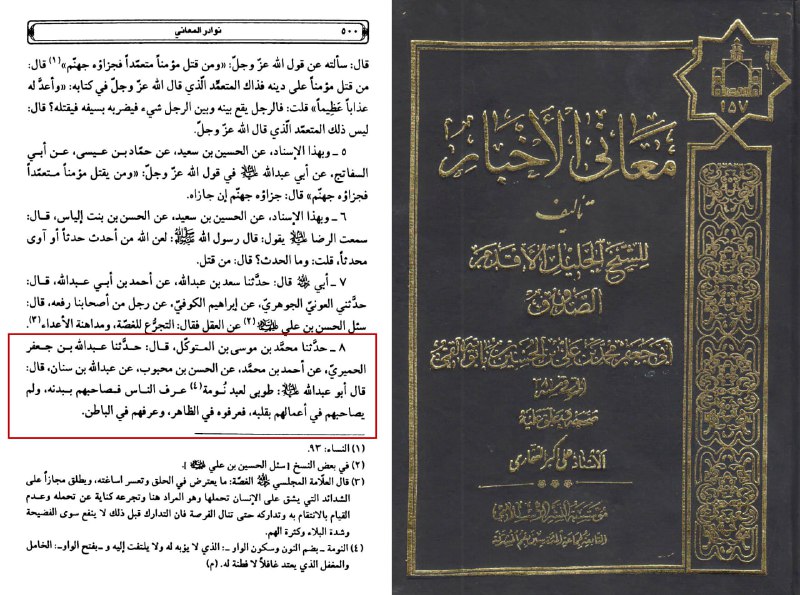 ٥٠٠
نوادر المعاني
قال: سألته عن قول الله عزّ وجلّ: «ومن قتل مؤمناً متعمّداً فجزاؤه جهنّم»(١) قال:
من قتل مؤمناً على دينه فذاك المتعمّد الّذي قال الله عزّ وجلّ في كتابه: «وأعدّ له
عذاباً عظيماً» قلت: فالرجل يقع بينه وبين الرجل شيء فيضربه بسيفه فيقتله؟ قال:
ليس ذلك المتعمّد الّذي قال الله عزّ وجلّ.
٥ ـ وبهذا الإسناد، عن الحسين بن سعيد، عن حمّاد بن عيسى، عن أبي
السفاتج، عن أبي عبدالله ﵇ في قول الله عزّ وجلّ: «ومن يقتل مؤمناً متعمّداً
فجزاؤه جهنّم» قال: جزاؤه جهنّم إن جازاه.
٦ ـ وبهذا الإسناد، عن الحسين بن سعيد، عن الحسن بن بنت إلياس، قال:
سمعت الرضا ﵇ يقول: قال رسول الله ﷺ: لعن الله من أحدث حدثاً أو آوى
محدثاً، قلت: وما الحدث؟ قال: من قتل.
٧ ـ أبي ﵀ قال: حدّثنا سعد بن عبدالله، عن أحمد بن أبي عبدالله، قال:
حدّثني العونيّ الجوهريّ، عن إبراهيم الكوفيّ، عن رجل من أصحابنا رفعه، قال:
سئل الحسن بن علي ﵇(٢) عن العقل فقال: التجرُّع للغصّة، ومداهنة الأعداء(٣).
٨ ـ حدّثنا محمّد بن موسى بن المتوكّل، قال: حدّثنا عبدالله بن جعفر
الحميريّ، عن أحمد بن محمّد، عن الحسن بن محبوب، عن عبدالله بن سنان، قال:
قال أبو عبدالله ﵇: طوبى لعبد نُومة(٤) عرف الناس فصاحبهم ببدنه، ولم
يصاحبهم في أعمالهم بقلبه، فعرفوه في الظاهر، وعرفهم في الباطن.
(١) النساء: ٩٣.
(٢) في بعض النسخ [سئل الحسين بن علي ﵇].
(٣) قال العلّامة المجلسي ﵀ الغصّة: ما يعترض في الحلق وتعسر اساغته، ويطلق مجازاً على
الشدائد التي يشق على الإنسان تحملها وهو المراد هنا وتجرعه كناية عن تحمله وعدم
القيام بالانتقام به وتداركه حتى تنال الفرصة فان التدارك قبل ذلك لا ينفع سوى الفضيحة
وشدة البلاء وكثرة الهم.
(٤) النومة ـ بضم النون وسكون الواو ـ: الذي لا يؤبه له ولا يلتفت إليه و ـ بفتح الواو ـ: الخامل
والمغفل الذي يعتد غافلاً لا فطنة له. (م)
١٥٧
معاني الأخبار
تأليف
للشيخ الجليل الأقدم
الصدوق
أبي جعفر محمد بن علي بن الحسين بن بابويه القمي
الأستاذ علي أكبر الغفاري
مؤسسة النشر الإسلامي